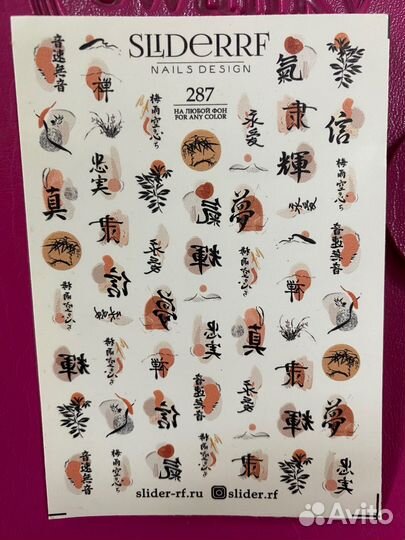 SLIDERRF
NAILS DESIGN
287
НА ЛЮБОЙ ФОН
FOR ANY COLOR
音速無音
真
輝
音速無音
禅
忠実
信
梅雨空
梅雨空
梅雨空
永愛
夢
禅
信
氣
氣
輝
忠実
音速無音
梅雨空
永愛
夢
梅雨空
真
永愛
氣
輝
禅
輝
信
梅雨空
音速無音
夢
忠実
slider-rf.ru
slider.rf
Avito